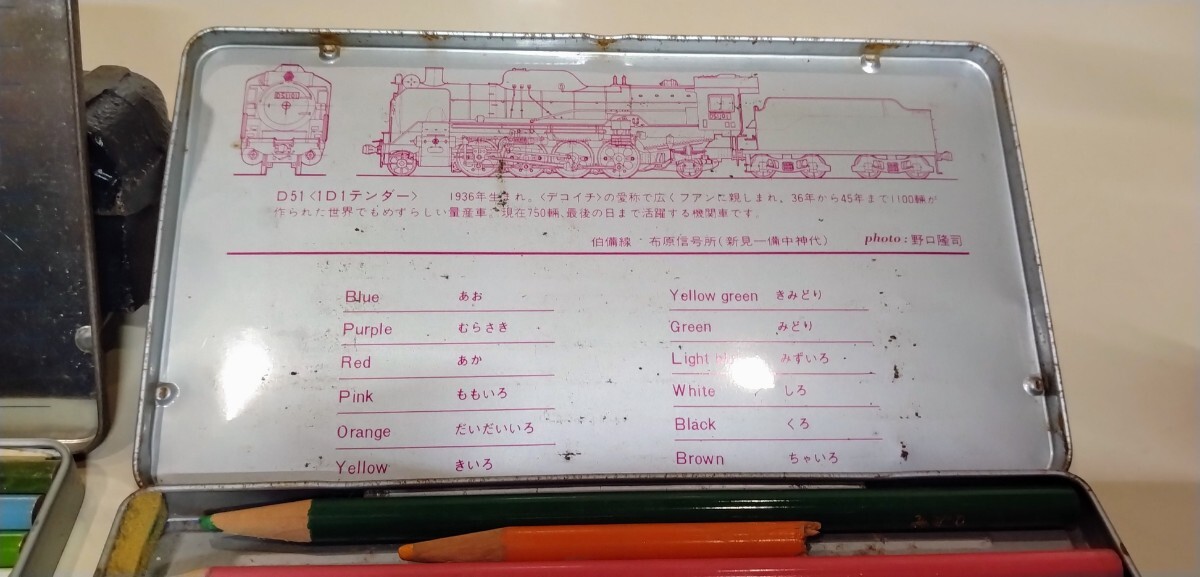 D51〈1D1テンダー〉 1936年生まれ。〈デコイチ〉の愛称で広くファンに親しまれ。36年から45年まで1100輛が
作られた世界でもめずらしい量産車。現在750輛、最後の日まで活躍する機関車です。
伯備線・布原信号所(新見―備中神代) photo:野口隆司
Blue あお
Purple むらさき
Red あか
Pink ももいろ
Orange だいだいいろ
Yellow きいろ
Yellow green きみどり
Green みどり
Light みずいろ
White しろ
Black くろ
Brown ちゃいろ